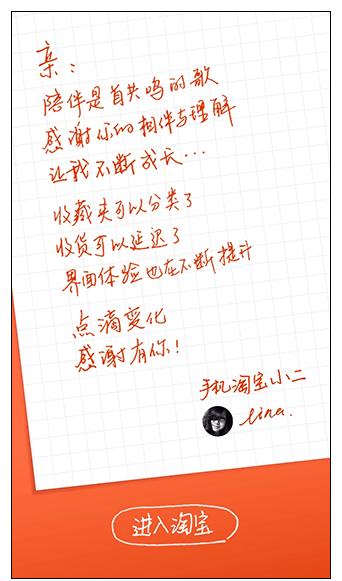 亲：
陪伴是首共鸣的歌
感谢你的相伴与理解
让我不断成长…
收藏夹可以分类了
收货可以延迟了
界面体验也在不断提升
点滴变化
感谢有你！
手机淘宝小二
Lina.
进入淘宝